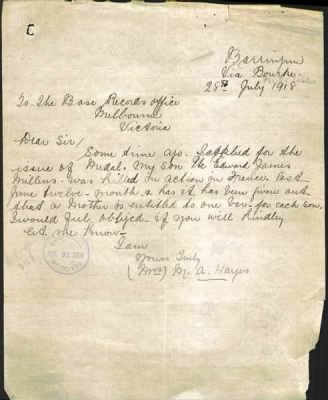 Barringun
Via Bourke
28th July 1918
To The Base Records office
Melbourne
Victoria
Dear Sir/
Some time ago. I applied for the
issue of Medal. My son Pte Edward James
Millens. was killed in action in France last
June twelve-month & has it has been given out
that a Mother is entitled to one bar. for each son,
I would feel obliged if you will kindley
let me know
I am
Yours Truly
(Mrs) M. A. Hayes